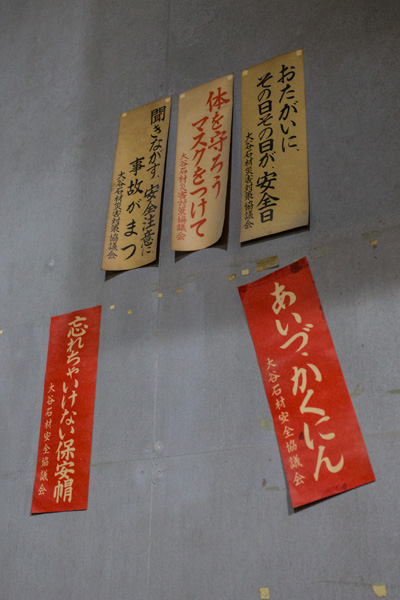 おたがいに、
その日その日が、安全日
大谷石材災害対策協議会
体を守ろう
マスクをつけて
大谷石材災害対策協議会
聞きながす、安全注意に
事故がまつ
大谷石材災害対策協議会
あいづ、かくにん
大谷石材安全協議会
忘れちゃいけない保安帽
大谷石材安全協議会